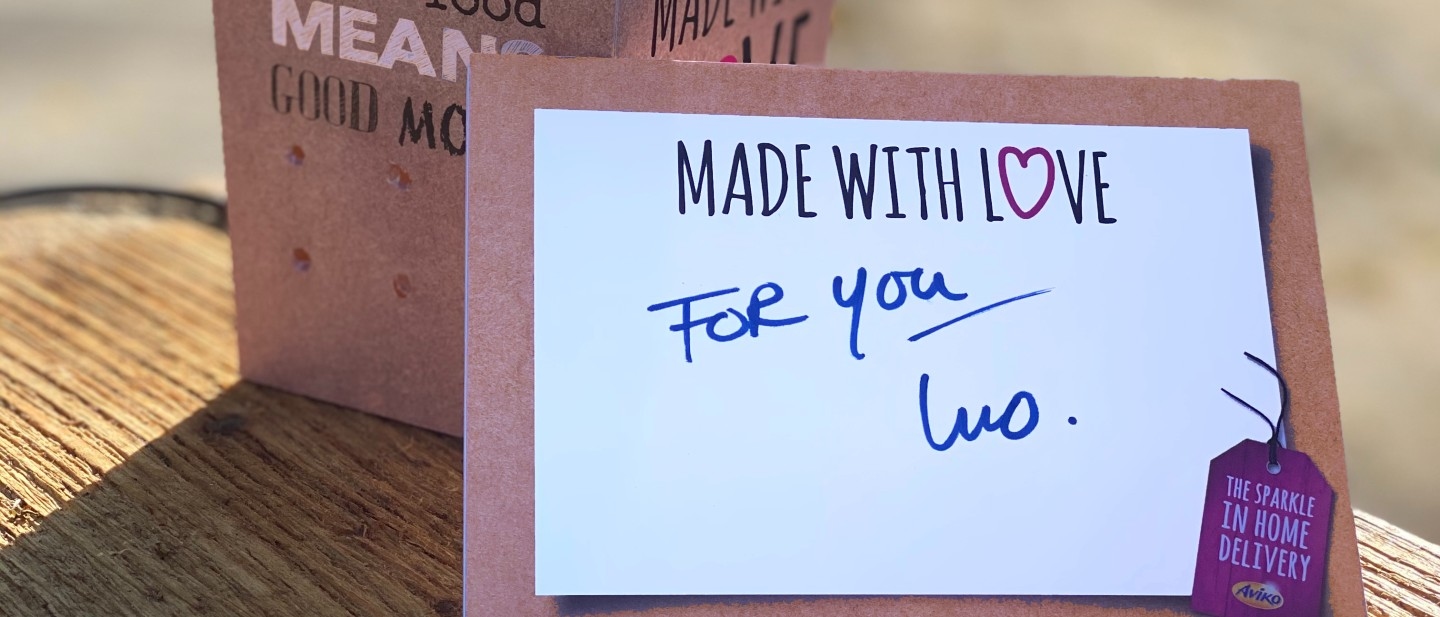 food
MEANS
GOOD MO
MADE WI
VE
MADE WITH LOVE
FOR you
Luo.
THE SPARKLE
IN HOME
DELIVERY
Aviko